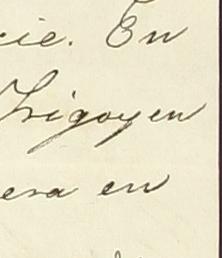 cie. En
Irigoyen
era en